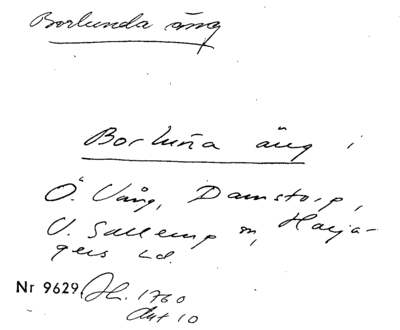 Borlunda äng
Borluña äng i
Ö. Vång, Damstorp,
V. Sallerup sn, Harja-
gers hd.
Nr 9629. Ah. 1760
Akt 10